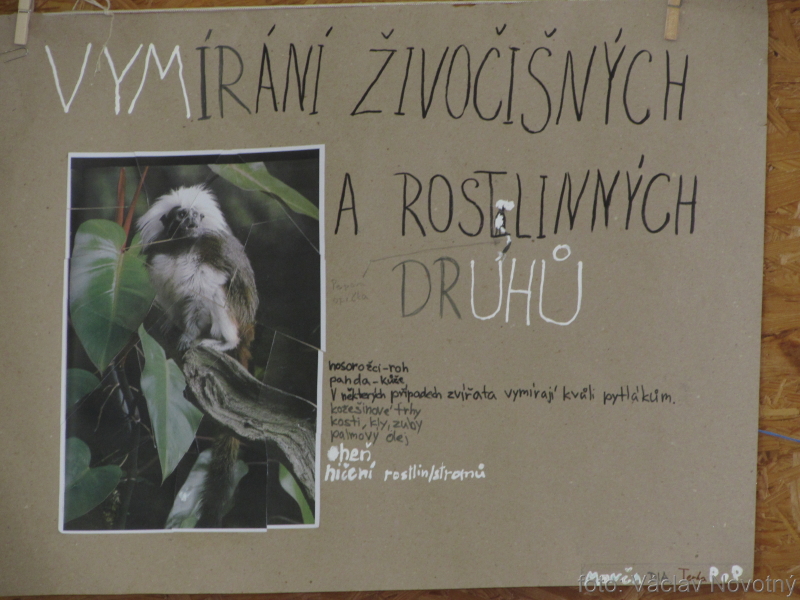 VYMÍRÁNÍ ŽIVOČIŠNÝCH
A ROSTLINNÝCH
DRUHŮ
nosorožci-roh
panda-kůže
V některých případech zvířata vymírají kvůli pytlákům.
kožešinové trhy
kosti, kly, zuby
palmový olej
oheň
ničení rostlin/stromů
foto: Václav Novotný